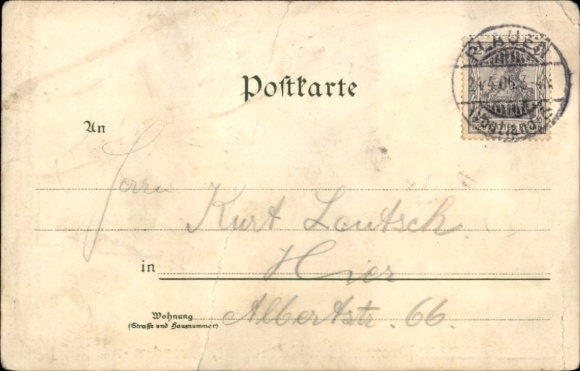 PLAUEN
4.05.
(Vogtland)
Postkarte
An
Herrn
Kurt Lautsch.
in Hier
Wohnung Albertstr. 66.
(Straße und Hausnummer)